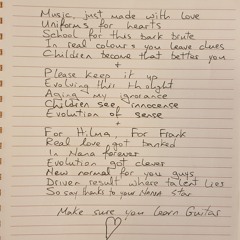 Music, just made with love
Uniforms, for hearts
School for this bark brute
In real colour's you leave clues
Children become that better you
+
Please keep it up
Evolving this thought
Aging my ignorance
Children see, innocense
Evolution of sense
+
For Hilma, For Frank
Real love got banked
In Nana forever
Evolution got clever
New normal for you guys
Driven result where talent lies
So say thanks to your NANA star
Make sure you learn Guitar